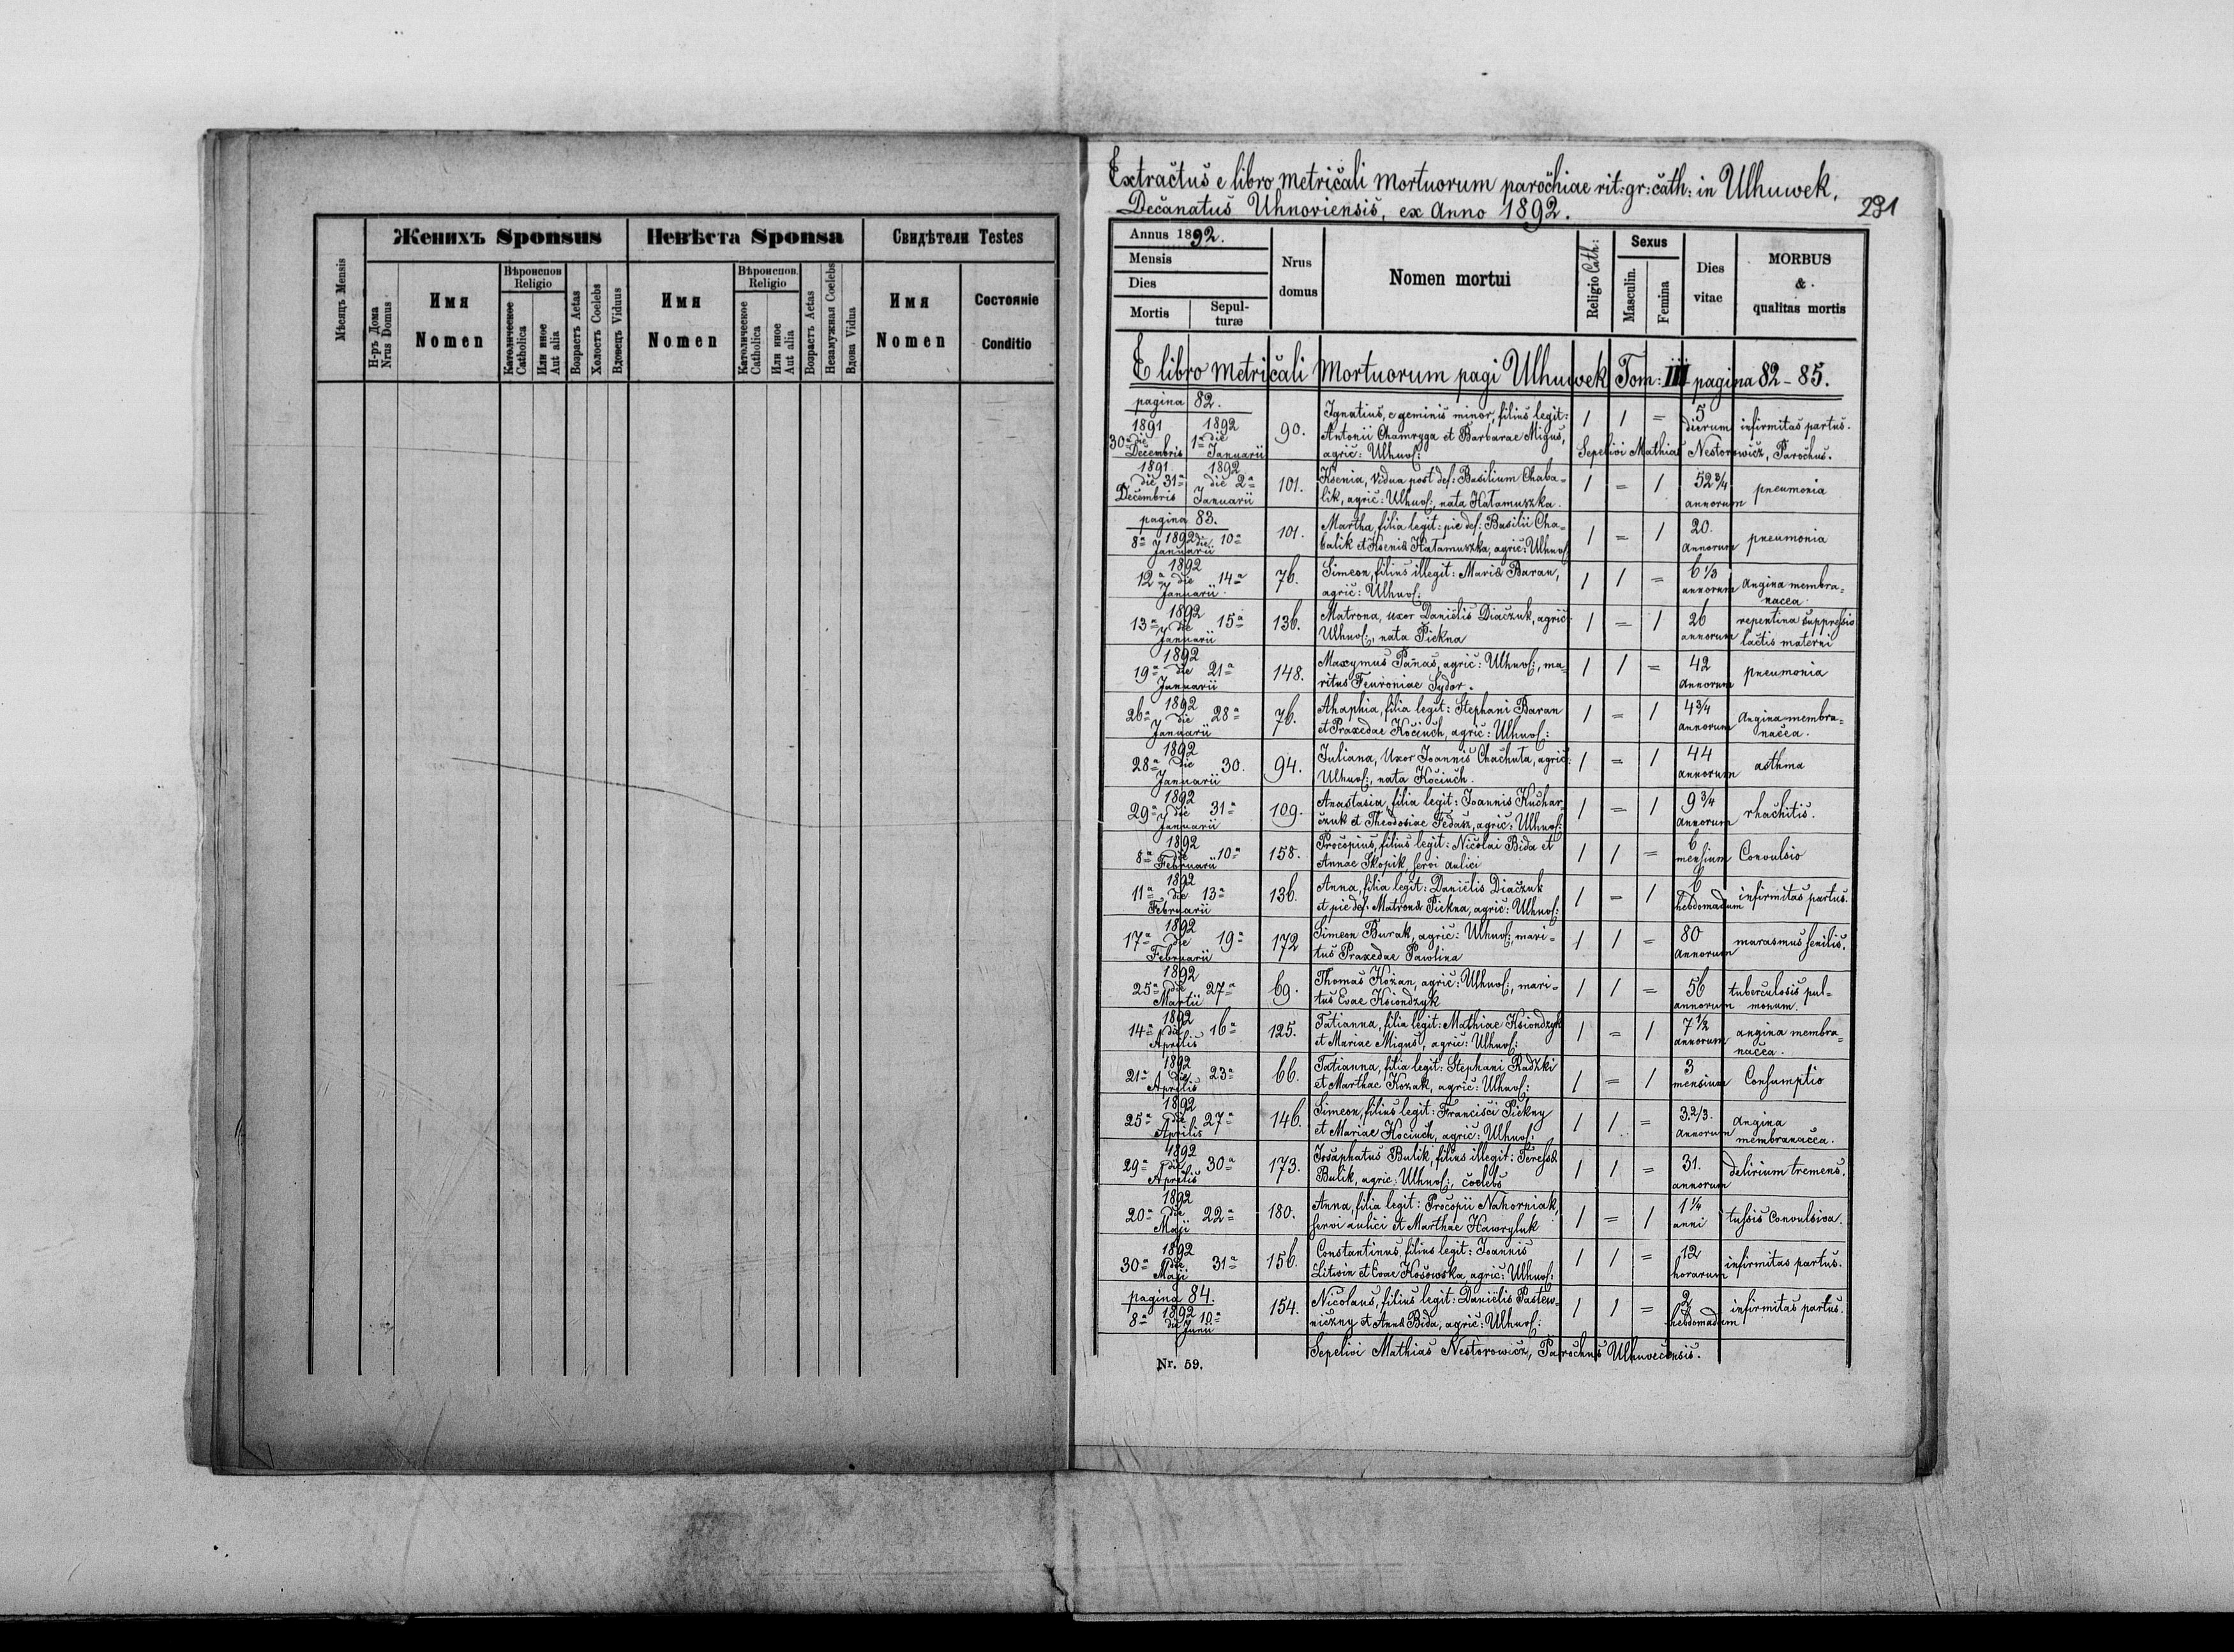 Женихъ Sponsus
Невѣста Sponsa
Свидѣтели Testes
Мѣсяцъ Mensis
Н-ръ Дома
Nrus Domus
Имя
Nomen
Вѣроиспов
Religio
Католическое
Catholica
Или иное
Aut alia
Возрастъ Aetas
Холостъ Coelebs
Вдовецъ Viduus
Имя
Nomen
Вѣроиспов.
Religio
Католическое
Catholica
Или иное
Aut alia
Возрастъ Aetas
Незамужная Coelebs
Вдова Vidua
Имя
Nomen
Состоянiе
Conditio
Extractus e libro metricali mortuorum parochiae rit: gr: cath: in Ulhuwek,
Decanatus Uhnoviensis, ex Anno 1892.
291
Annus 1892.
Mensis
Dies
Mortis
Sepul-
turæ
Nrus
domus
Nomen mortui
Religio Cath:
Sexus
Masculin.
Femina
Dies
vitae
MORBUS
&
qualitas mortis
E libro metricali Mortuorum pagi Ulhuwek Tom: III pagina 82-85.
pagina 82.
1891 1892
30a die 1a die
Decembris Januarii
90.
Ignatius, e geminis minor, filius legit:
Antonii Chamryga et Barbarae Migus,
agric: Ulhuv:
1 1 =
5
dierum
infirmitas partus.
Sepelivi Mathias Nestorowicz, Parochus.
1891 1892
die 31a die 2a
Decembris Januarii
101.
Ksenia, vidua post def: Basilium Chaba-
lik, agric: Ulhuv:, nata Hałamuszka.
1 = 1
52 3/4
annorum
pneumonia
pagina 83.
1892
8a die 10a
Januarii
101.
Martha, filia legit: pie def: Basilii Cha-
balik et Kseniæ Hałamuszka, agric: Ulhuv:
1 = 1
20.
annorum
pneumonia
1892
12a die 14a
Januarii
76.
Simeon, filius illegit: Mariæ Baran,
agric: Ulhuv:
1 1 =
6 1/3
annorum
angina membra-
nacea.
1892
13a die 15a
Januarii
136.
Matrona, uxor Daniëlis Diaczuk, agric:
Ulhuv:, nata Piekna
1 = 1
26
annorum
repentina suppressio
lactis materni
1892
19a die 21a
Januarii
148.
Maxymus Panas, agric: Ulhuv:, ma-
ritus Feuroniae Sydor.
1 1 =
42
annorum
pneumonia
1892
26a die 28a
Januarii
76.
Ahaphia, filia legit: Stephani Baran
et Praxedae Kociuch, agric: Ulhuv:
1 = 1
4 3/4
annorum
Angina membra-
nacea.
1892
28a die 30.
Januarii
94.
Juliana, uxor Joannis Chachuta, agric:
Ulhuv:, nata Kociuch.
1 = 1
44
annorum
asthma
1892
29a die 31a
Januarii
109.
Anastasia, filia legit: Joannis Kuchar-
czuk et Theodosiae Fedasz, agric: Ulhuv:
1 = 1
9 3/4
annorum
rhachitis.
1892
8a die 10a
Februarii
158.
Procopius, filius legit: Nicolai Bida et
Annae Skopik, servi aulici
1 1 =
6
mensium
Convulsio
1892
11a die 13a
Februarii
136.
Anna, filia legit: Daniëlis Diaczuk
et pie def: Matronæ Piekna, agric: Ulhuv:
1 = 1
6
hebdomadum
infirmitas partus.
1892
17a die 19a
Februarii
172
Simeon Burak, agric: Ulhuv:, mari-
tus Praxedae Pawlina
1 1 =
80
annorum
marasmus senilis.
1892
25a die 27a
Martii
69.
Thomas Kożan, agric: Ulhuv:, mari-
tus Evae Ksiondzyk
1 1 =
56
annorum
tuberculosis pul-
monum.
1892
14a die 16a
Aprilis
125.
Tatianna, filia legit: Mathiae Ksiondzyk
et Mariae Migus, agric: Ulhuv:
1 = 1
7 1/2
annorum
angina membra-
nacea.
1892
21a die 23a
Aprilis
66.
Tatianna, filia legit: Stephani Radzki
et Marthae Kozak, agric: Ulhuv:
1 = 1
3
mensium
Consumptio
1892
25a die 27a
Aprilis
146.
Simeon, filius legit: Francisci Piekny
et Mariae Kociuch, agric: Ulhuv:
1 1 =
3 2/3.
annorum
angina
membranacea.
1892
29a die 30a
Aprilis
173.
Josaphatus Bulik, filius illegit: Teresæ
Bulik, agric: Ulhuv:, coelebs
1 1 =
31.
annorum
delirium tremens.
1892
20a die 22a
Maji
180.
Anna, filia legit: Procopii Nahorniak,
servi aulici et Marthae Hawryluk
1 = 1
1 1/4
anni
tussis Convulsiva.
1892
30a die 31a
Maji
156.
Constantinus, filius legit: Joannis
Litwin et Evae Kosowska, agric: Ulhuv:
1 1 =
12
horarum
infirmitas partus.
pagina 84.
1892
8a die 10a
Junii
154.
Nicolaus, filius legit: Daniëlis Pastew-
niczny et Annæ Bida, agric: Ulhuv:
1 1 =
2
hebdomadum
infirmitas partus.
Sepelivi Mathias Nestorowicz, Parochus Ulhuvecensis.
Nr. 59.